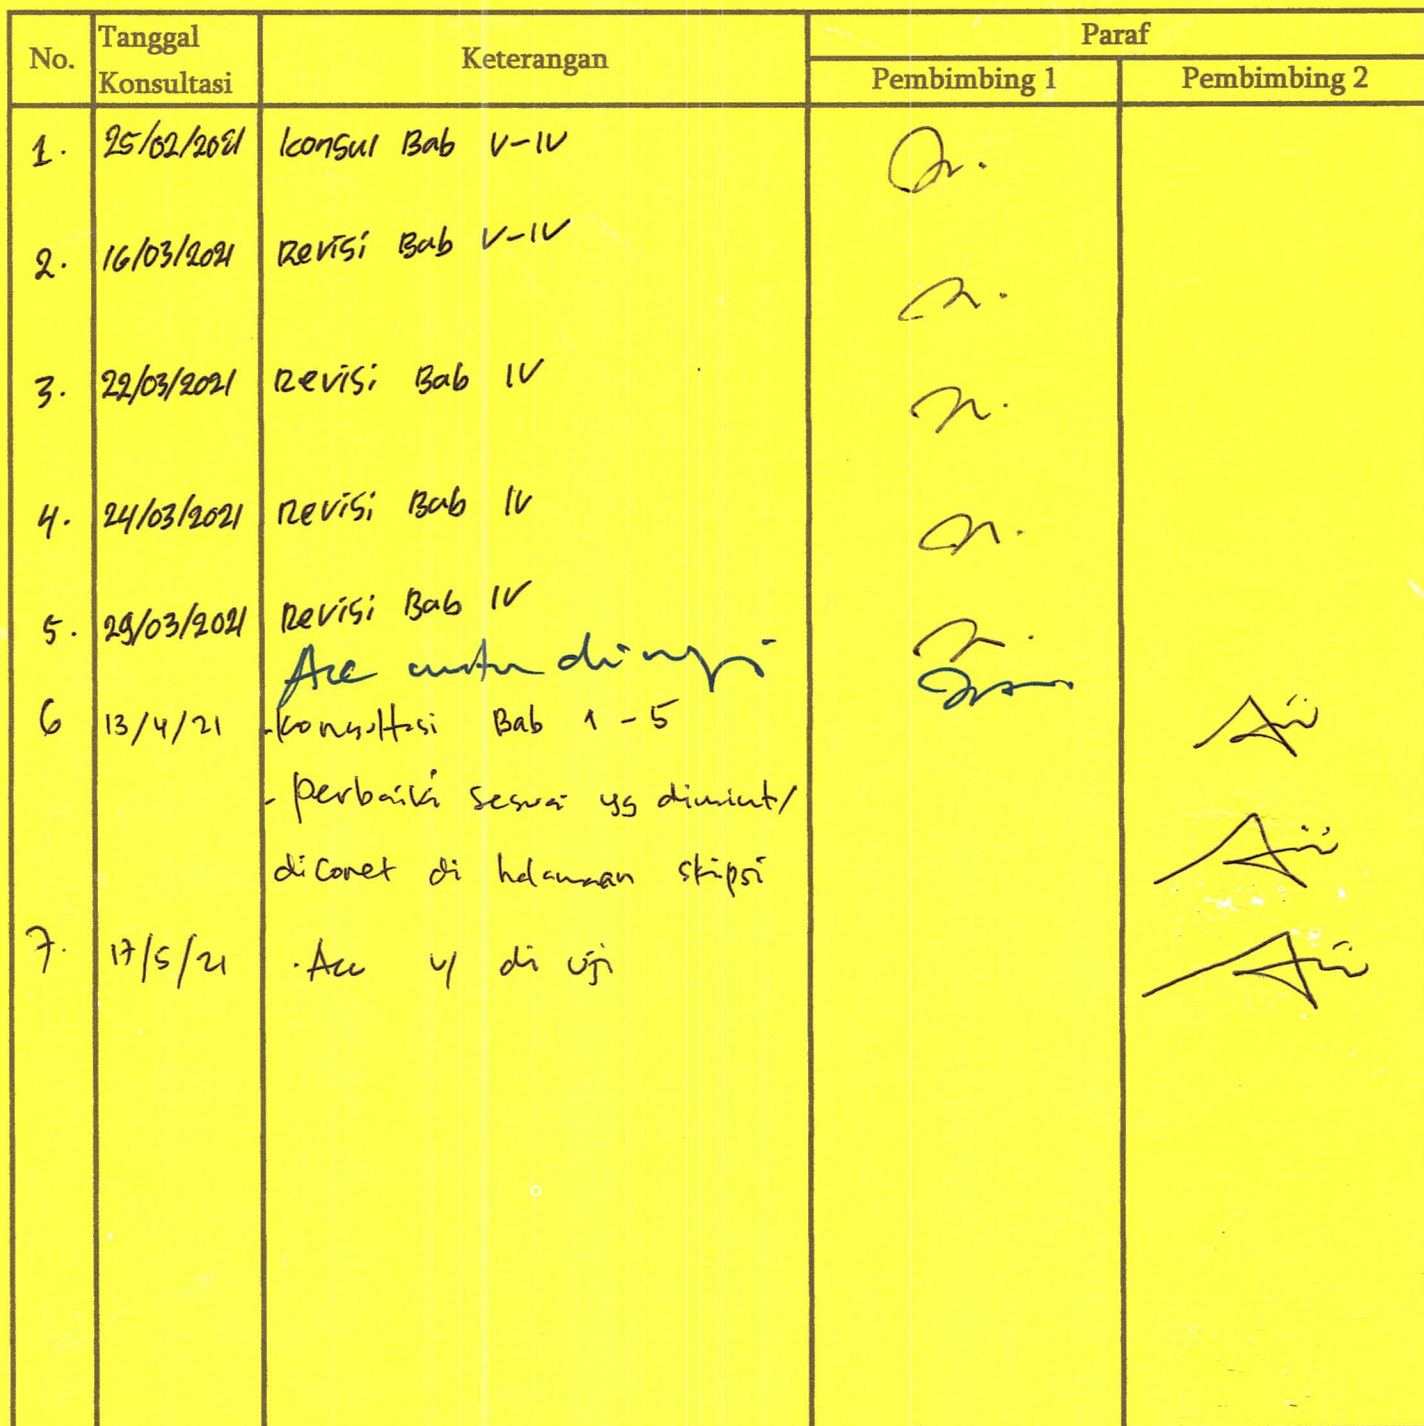 No. Tanggal Konsultasi Keterangan Paraf
Pembimbing 1 Pembimbing 2
1. 25/02/2021 Konsul Bab V-IV
2. 16/03/2021 Revisi Bab V-IV
3. 22/03/2021 Revisi Bab IV
4. 24/03/2021 Revisi Bab IV
5. 29/03/2021 Revisi Bab IV
Acc untuk diuji
6 13/4/21 -Konsultasi Bab 1-5
- Perbaiki sesuai yg diminta/
dicoret di halaman skripsi
7. 17/5/21 . Acc u/ di uji